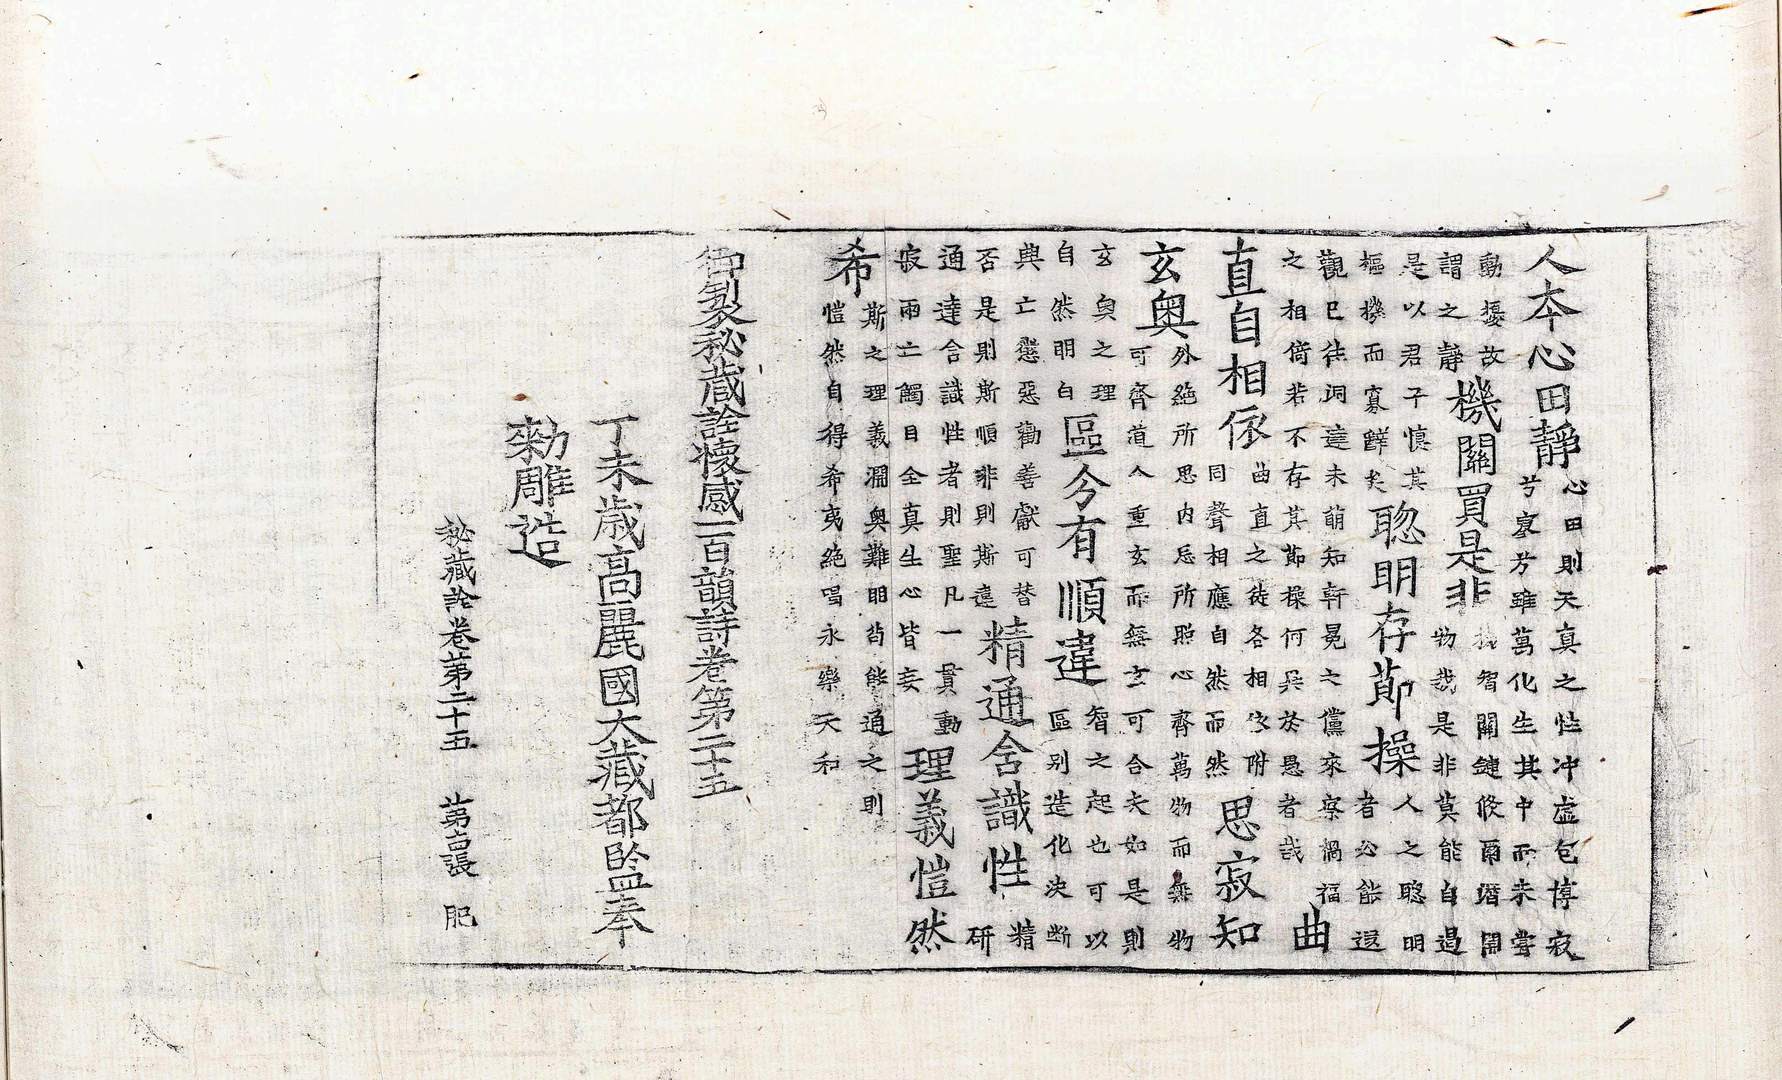 人本心田靜
心田則天真之性冲虛包博寂
兮寥兮雖萬化生其中而未甞
動擾故
謂之靜
機關買是非
機智關鍵倐爾潛開
物我是非莫能自過
是以君子慎其
樞機而寡鮮矣
聦明存莭操
人之聦明
者公能遠
觀已徃洞達未萌知軒冕之儻來察禍福
之相倚若不存其莭操何異於愚者哉
曲
直自相依
曲直之徒各相依附
同聲相應自然而然
思寂知
玄奧
外絕所思内忘所照心齊萬物而無物
可齊道人重玄而無玄可合夫如是則
玄奧之理
自然明白
區分有順違
智之起也可以
區別造化決断
與亡懲惡勸善獻可替
否是則斯順非則斯違
精通含識性
精
研
通達含識性者則聖凡一貫動
寂兩亡觸目全真生心皆妄
理義愷然
希
斯之理義淵奧難明苟能通之則
愷然自得希夷絕唱永樂天和
御製秘藏詮懷感一百韻詩卷第二十五
丁未歳高麗國大藏都監奉
勑雕造
秘藏詮卷第二十五 第吉張 肥